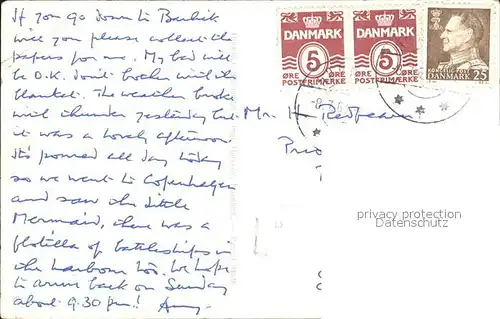 If you go down to
will you please collect the
papers for me. My bed will
be O.K. don't bother with the
blanket. The weather broke
with thunder yesterday but
it was a lovely afternoon.
It's poured all day today
so we went to Copenhagen
and saw the Little
Mermaid, there was a
flotilla of battleships in
the harbour too. We hope
to arrive back on Sunday
about 9.30 pm!
DANMARK
5
ØRE ØRE
POSTFRIMÆRKE
DANMARK
5
ØRE ØRE
POSTFRIMÆRKE
DANMARK
25
Mr. H. Redfearn
privacy protection
Datenschutz